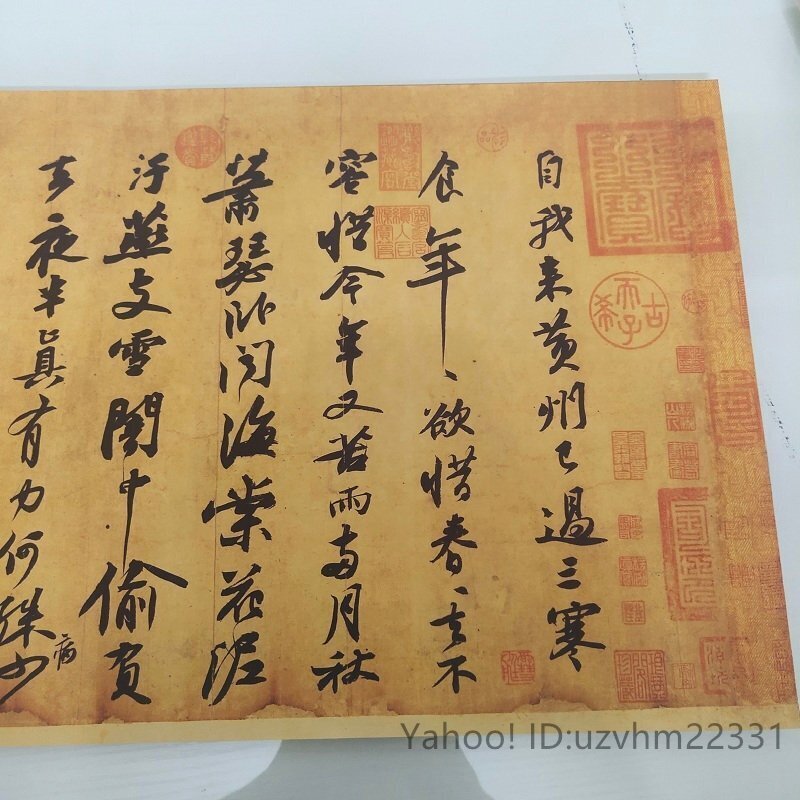 自我来黄州已過三寒
食年〻欲惜春〻去不
容惜今年又苦雨兩月秋
蕭瑟卧聞海棠花泥
汙燕支雪闇中偷負
去夜半真有力何殊少
病
古希天子
Yahoo! ID:uzvhm22331